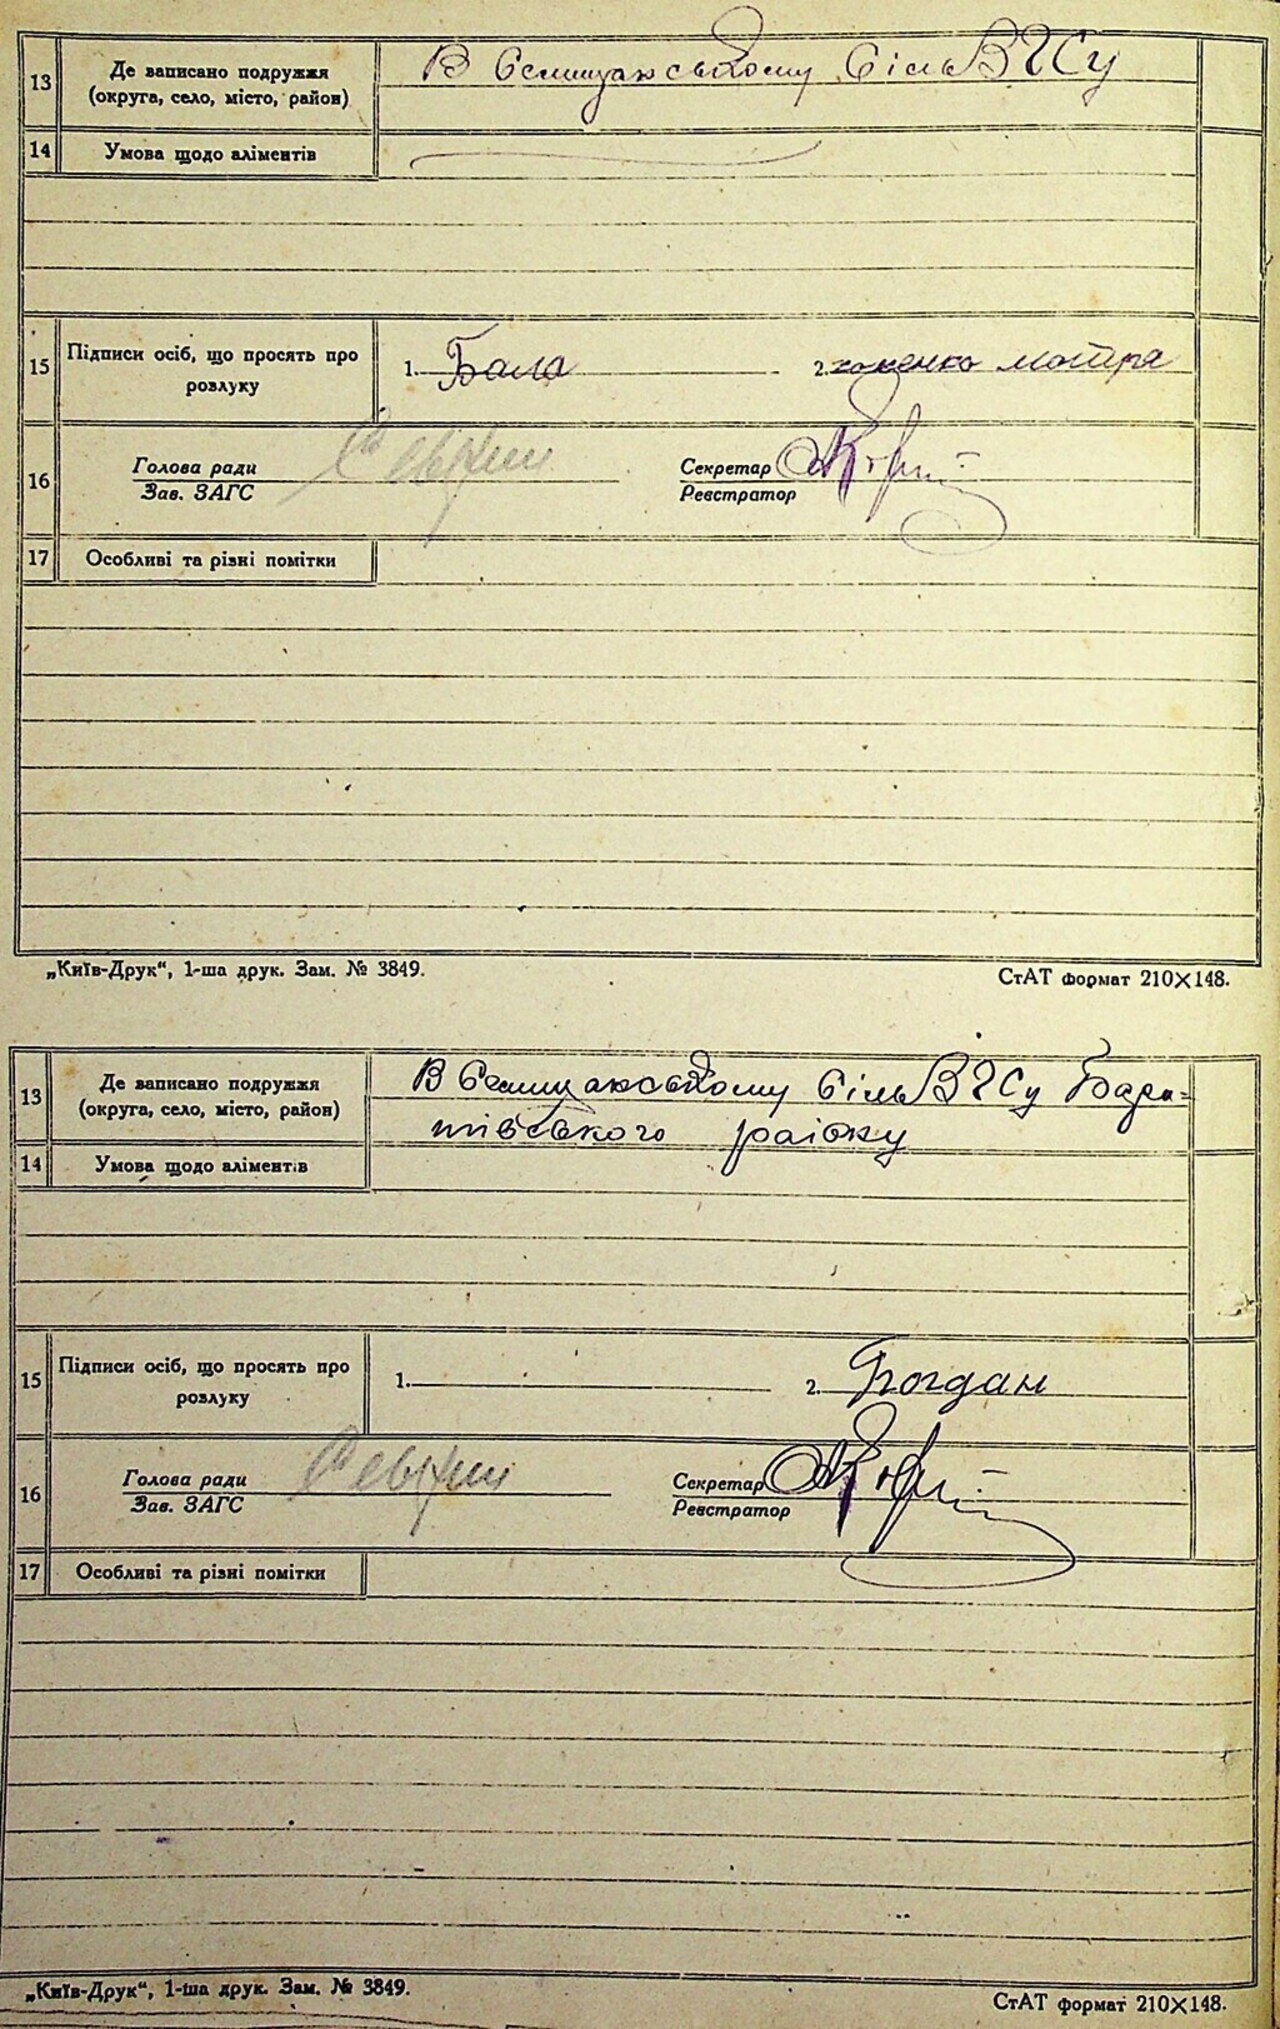 13
Де записано подружжя
(округа, село, місто, район)
В Селищанському СільВЧСу
14
Умова щодо аліментів
15
Підписи осіб, що просять про
розлуку
1. Бала
2. моттря
16
Голова ради
Зав. ЗАГС
Секретар
Реєстратор
17
Особливі та різні помітки
„Київ-Друк“, 1-ша друк. Зам. № 3849.
СтАТ формат 210×148.
13
Де записано подружжя
(округа, село, місто, район)
В Селищанському СільВЧСу Бара-
тівського району
14
Умова щодо аліментів
15
Підписи осіб, що просять про
розлуку
1.
2. Богдан
16
Голова ради
Зав. ЗАГС
Секретар
Реєстратор
17
Особливі та різні помітки
„Київ-Друк“, 1-ша друк. Зам. № 3849.
СтАТ формат 210×148.